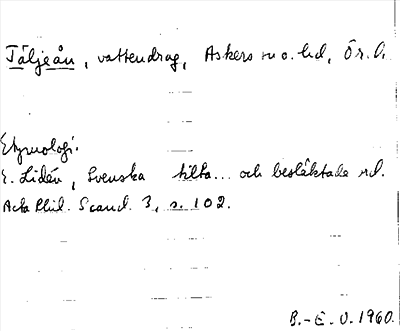 Täljeån, vattendrag, Askers sn o. hd, Ör. l.
Etymologi.
E. Lidén, Svenska tilta... och besläktade rd.
Acta Phil. Scand. 3, s. 102.
B.-E. O. 1960.